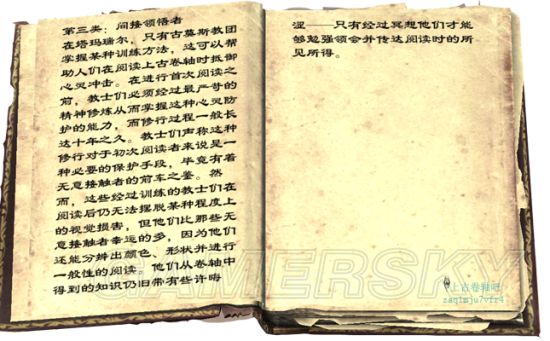 第三类：间接领悟者
在塔玛瑞尔，只有古莫斯教团
掌握某种训练方法，这可以帮
助人们在阅读上古卷轴时抵御
心灵冲击。在进行首次阅读之
前，教士们必须经过最严苛的
精神修炼从而掌握这种心灵防
护的能力，而修行过程一般长
达十年之久。教士们声称这种
修行对于初次阅读者来说是一
种必要的保护手段，毕竟有着
无意接触者的前车之鉴。然
而，这些经过训练的教士们在
阅读后仍无法摆脱某种程度上
的视觉损害，但他们比那些无
意接触者幸运的多，因为他们
还能分辨出颜色、形状并进行
一般性的阅读。他们从卷轴中
得到的知识仍旧带有些许晦
涩——只有经过冥想他们才能
够勉强领会并传达阅读时的所
见所得。
GAMERSKY
上古卷轴吧
zaq1mju7vfr4